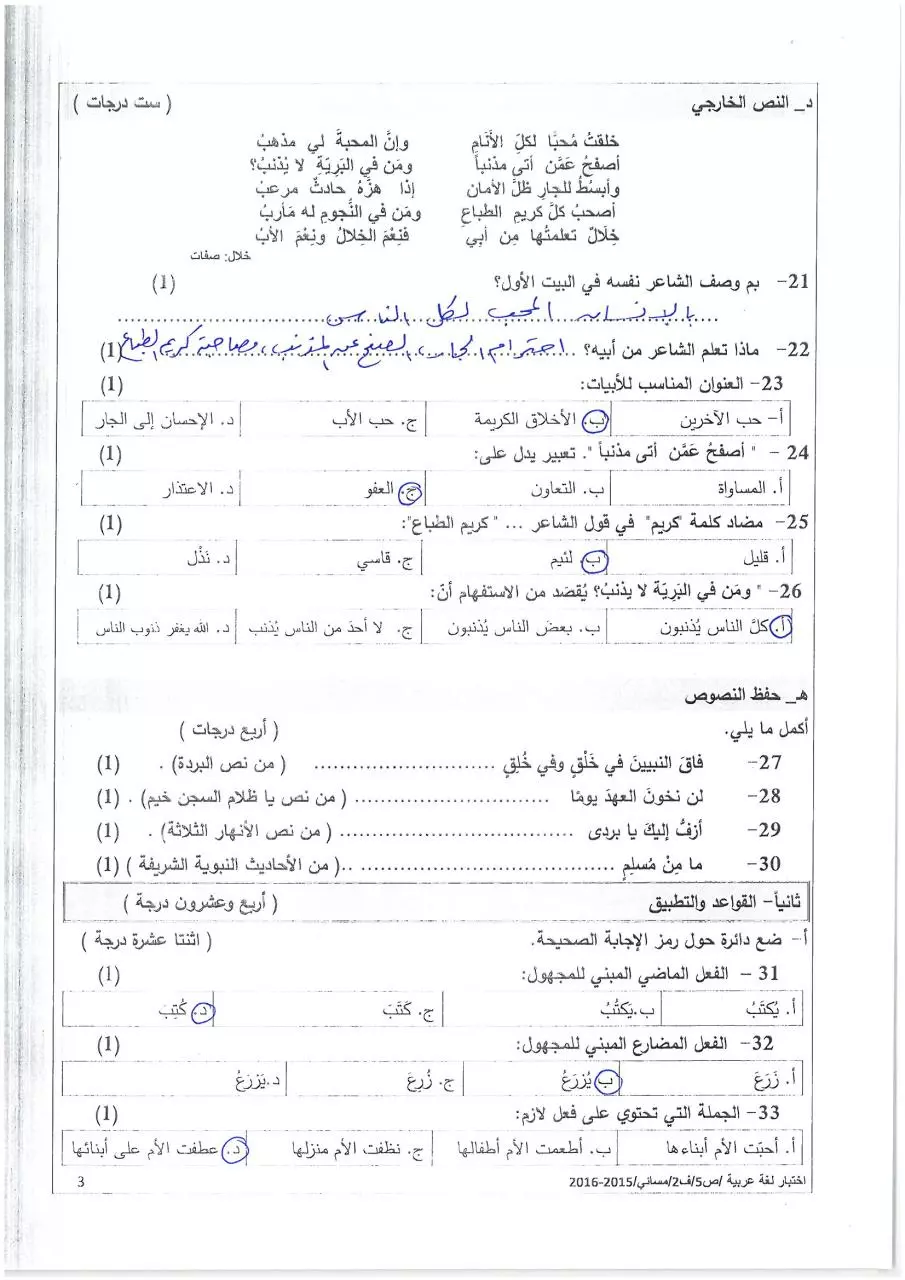 د_ النص الخارجي ( ست درجات )
خلقتُ مُحبًّا لكلِّ الأنَامِ وإنَّ المحبةَ لي مذهبُ
أصفحُ عَمَّن أتى مذنباً ومَن في البَرِيّةِ لا يُذنبُ؟
وأبسُطُ للجارِ ظلَّ الأمان إذا هزَّهُ حادثٌ مرعبُ
أصحبُ كلَّ كريمِ الطباعِ ومَن في النُّجومِ له مَأربُ
خِلالٌ تعلمتُها مِن أبي فَنِعْمَ الخِلالُ ونِعْمَ الأبُ
خلال: صفات
21- بم وصف الشاعر نفسه في البيت الأول؟ (1)
بالإنسان المحب لكل الناس
22- ماذا تعلم الشاعر من أبيه؟ احترام الجار، الصفح عن المذنب، ومصاحبة كريم الطباع (1)
23- العنوان المناسب للأبيات: (1)
أ- حب الآخرين ب. الأخلاق الكريمة ج. حب الأب د. الإحسان إلى الجار
24 - " أصفحُ عَمَّن أتى مذنباً ". تعبير يدل على: (1)
أ. المساواة ب. التعاون ج. العفو د. الاعتذار
25- مضاد كلمة "كريم" في قول الشاعر ... " كريم الطباع": (1)
أ. قليل ب. لئيم ج. قاسي د. نَذْل
26- " ومَن في البَرِيّة لا يذنبُ؟ يُقصَد من الاستفهام أنّ: (1)
أ. كلّ الناس يُذنبون ب. بعضَ الناس يُذنبون ج. لا أحدَ من الناس يُذنب د. الله يغفر ذنوب الناس
هـ_ حفظ النصوص
أكمل ما يلي. ( أربع درجات )
27- فاقَ النبيينَ في خَلْقٍ وفي خُلِقٍ ........................... ( من نص البردة) . (1)
28- لن نخونَ العهدَ يومًا ............................. ( من نص يا ظلام السجن خيم) . (1)
29- أزفُّ إليكَ يا بردى ................................... ( من نص الأنهار الثلاثة) . (1)
30- ما مِنْ مُسلِمٍ ........................................ ..( من الأحاديث النبوية الشريفة ) (1)
ثانياً- القواعد والتطبيق ( أربع وعشرون درجة )
أ- ضع دائرة حول رمز الإجابة الصحيحة. ( اثنتا عشرة درجة )
31 - الفعل الماضي المبني للمجهول: (1)
أ. يُكتَبُ ب.يَكتُبُ ج. كَتَبَ د. كُتِبَ
32- الفعل المضارع المبني للمجهول: (1)
أ. زَرَعَ ب. يُزرَعُ ج. زُرِعَ د.يَزرَعُ
33- الجملة التي تحتوي على فعل لازم: (1)
أ. أحبّت الأم أبناءها ب. أطعمت الأم أطفالها ج. نظفت الأم منزلها د. عطفت الأم على أبنائها
اختبار لغة عربية /ص5/ف2/مسائي/2015-2016 3